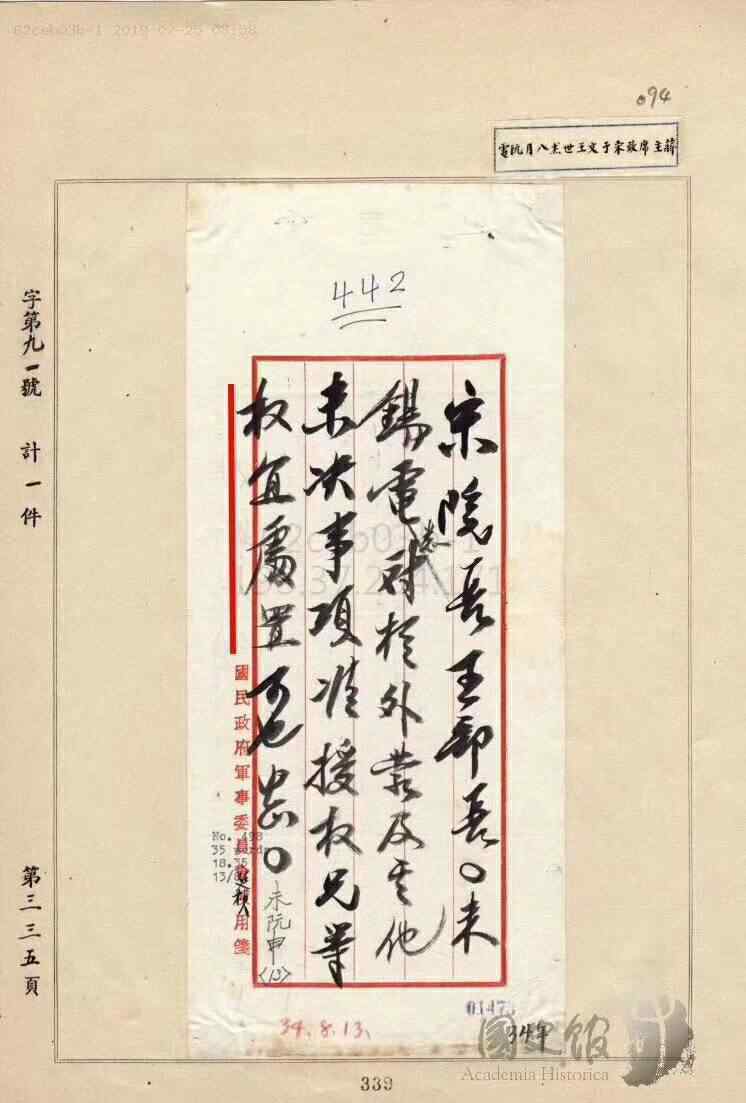 62ceb03b-1 2019-02-25 09:58
094
蔣主席致宋子文王世杰八月阮電
442
宋院長王部長。未
錫電悉對於外蒙及其他
未決事項准授权兄等
权宜處置可也 中正。
國民政府軍事委員會用箋
No. 498
35
18.35
13/8
未阮申
34.8.13.
34年
字第九一號 計一件
第三三五頁
國史館
Academia Historica
339